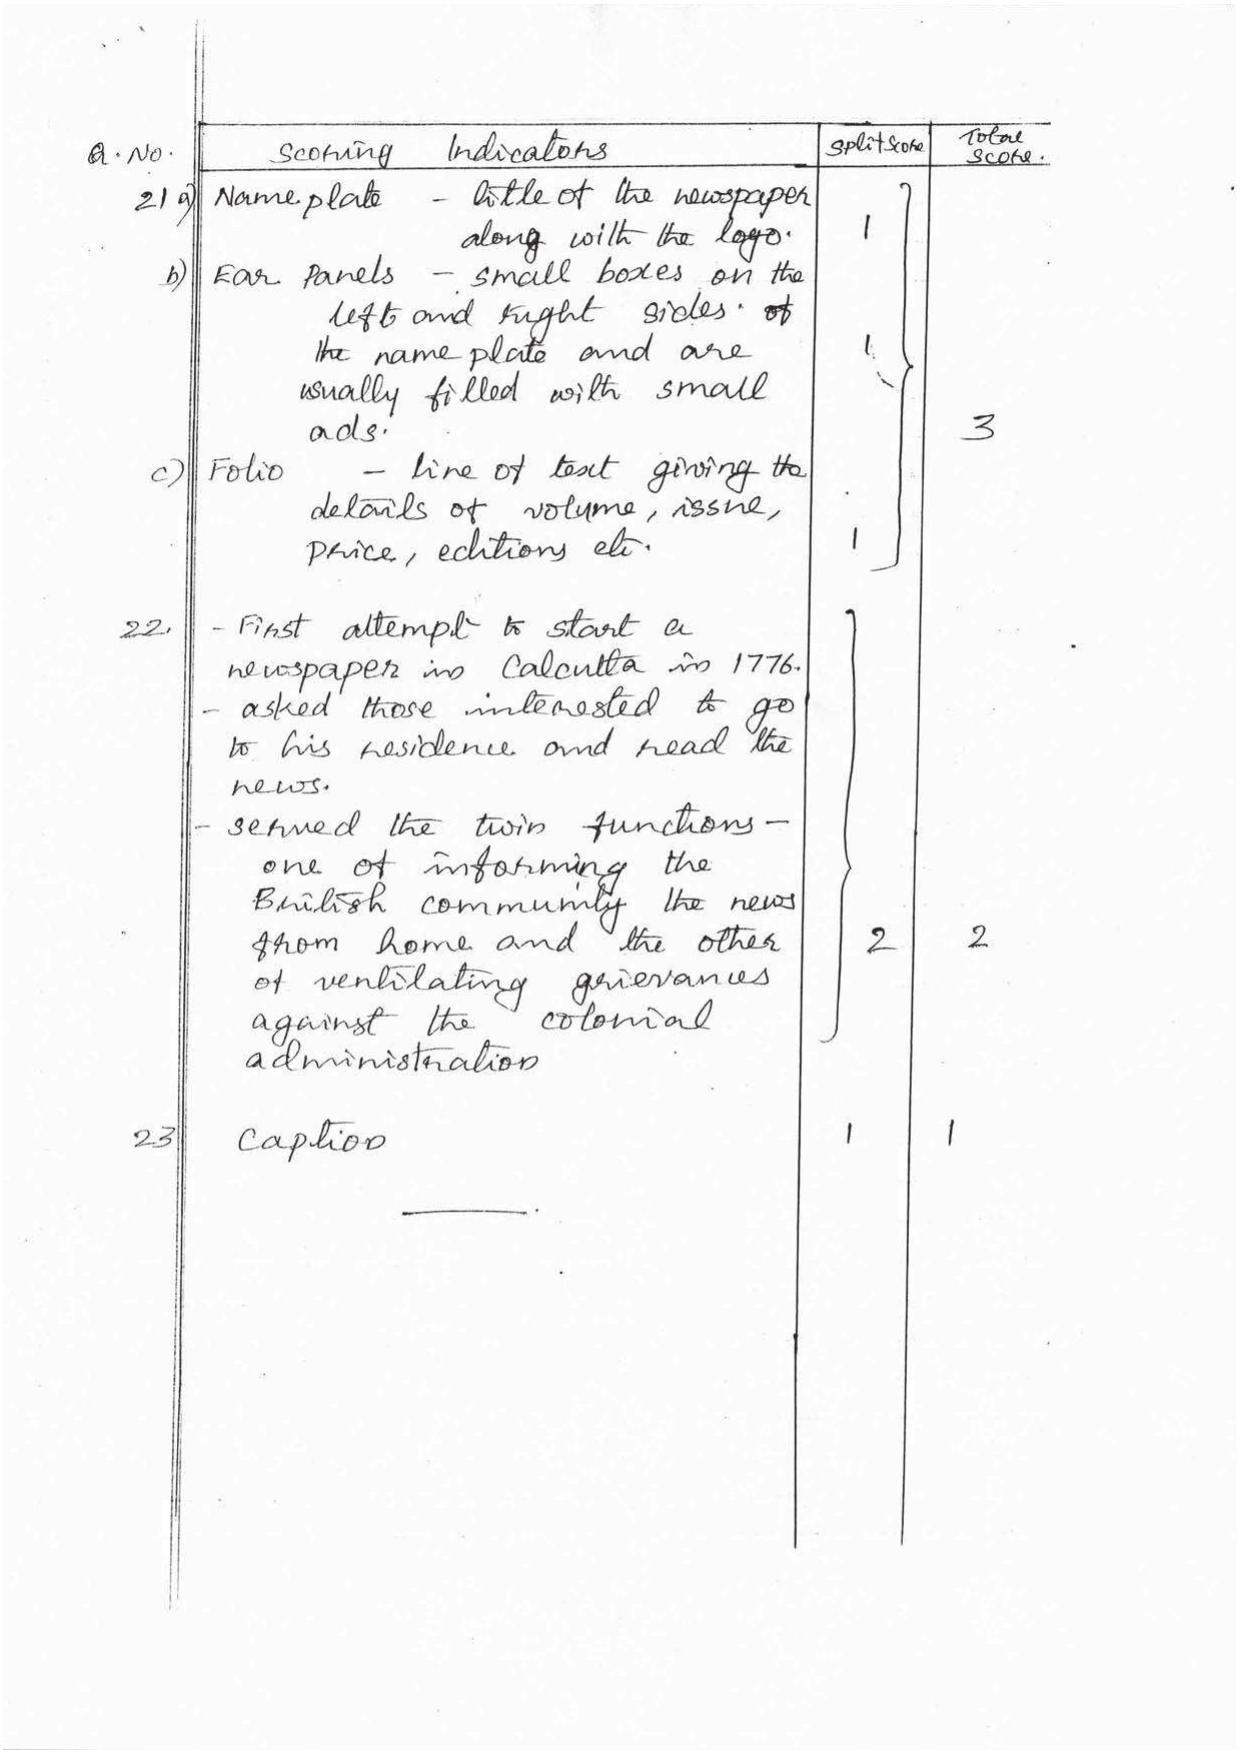 Q. No. Scoring Indicators Split Score Total Score.
21 a) Name plate - title of the newspaper
along with the logo. 1
b) Ear Panels - small boxes on the
left and right sides. of
the name plate and are 1
usually filled with small
ads. 3
c) Folio - line of text giving the
details of volume, issue,
price, editions etc. 1
22. - First attempt to start a
newspaper in Calcutta in 1776.
- asked those interested to go
to his residence and read the
news.
- served the twin functions -
one of informing the
British community the news
from home and the other 2 2
of ventilating grievances
against the colonial
administration
23 Caption 1 1